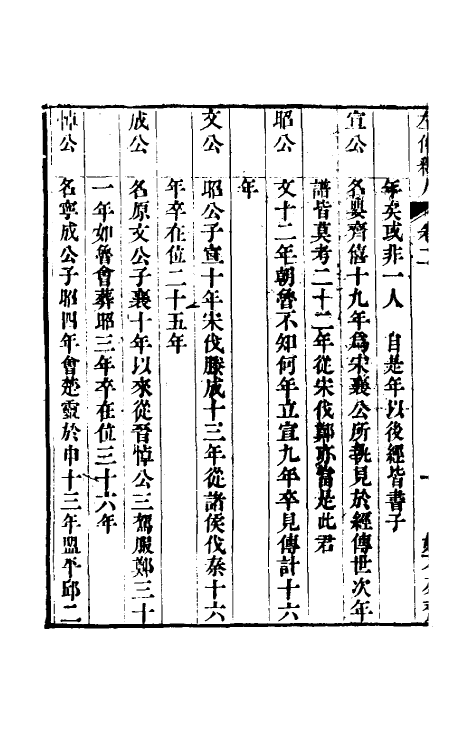 年矣或非一人　自是年以後經皆書子
宣公　名嬰齊僖十九年爲宋襄公所執見於經傳世次年
譜皆莫考二十二年從宋伐鄭亦當是此君
昭公　文十二年朝魯不知何年立宣九年卒見傳計十六
年
文公　昭公子宣十年宋伐滕成十三年從諸侯伐秦十六
年卒在位二十五年
成公　名原文公子襄十年以來從晉悼公三駕服鄭三十
一年如魯會葬昭三年卒在位三十六年
悼公　名寧成公子昭四年會楚靈於申十三年盟平邱二